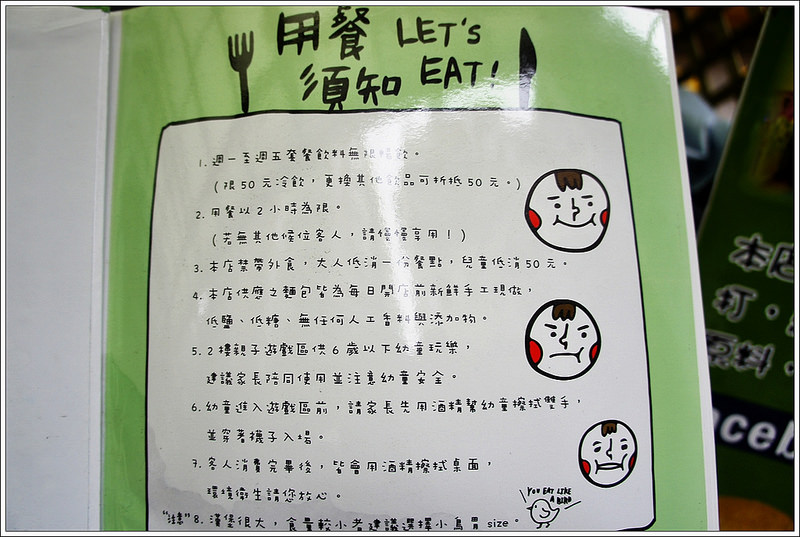 用餐 LET'S
須知 EAT!
1. 週一至週五套餐飲料無限暢飲。
(限50元冷飲，更換其他飲品可折抵50元。)
2. 用餐以2小時為限。
(若無其他候位客人，請慢慢享用！)
3. 本店禁帶外食，大人低消一份餐點，兒童低消50元。
4. 本店供應之麵包皆為每日開店前新鮮手工現做，
低鹽、低糖、無任何人工香料與添加物。
5. 2樓親子遊戲區供6歲以下幼童玩樂，
建議家長陪同使用並注意幼童安全。
6. 幼童進入遊戲區前，請家長先用酒精幫幼童擦拭雙手，
並穿著襪子入場。
7. 客人消費完畢後，皆會用酒精擦拭桌面，
環境衛生請您放心。
YOU EAT LIKE
A BIRD
"注意" 8. 漢堡很大，食量較小者建議選擇小鳥胃size。
本店
打，
原料，
aceb